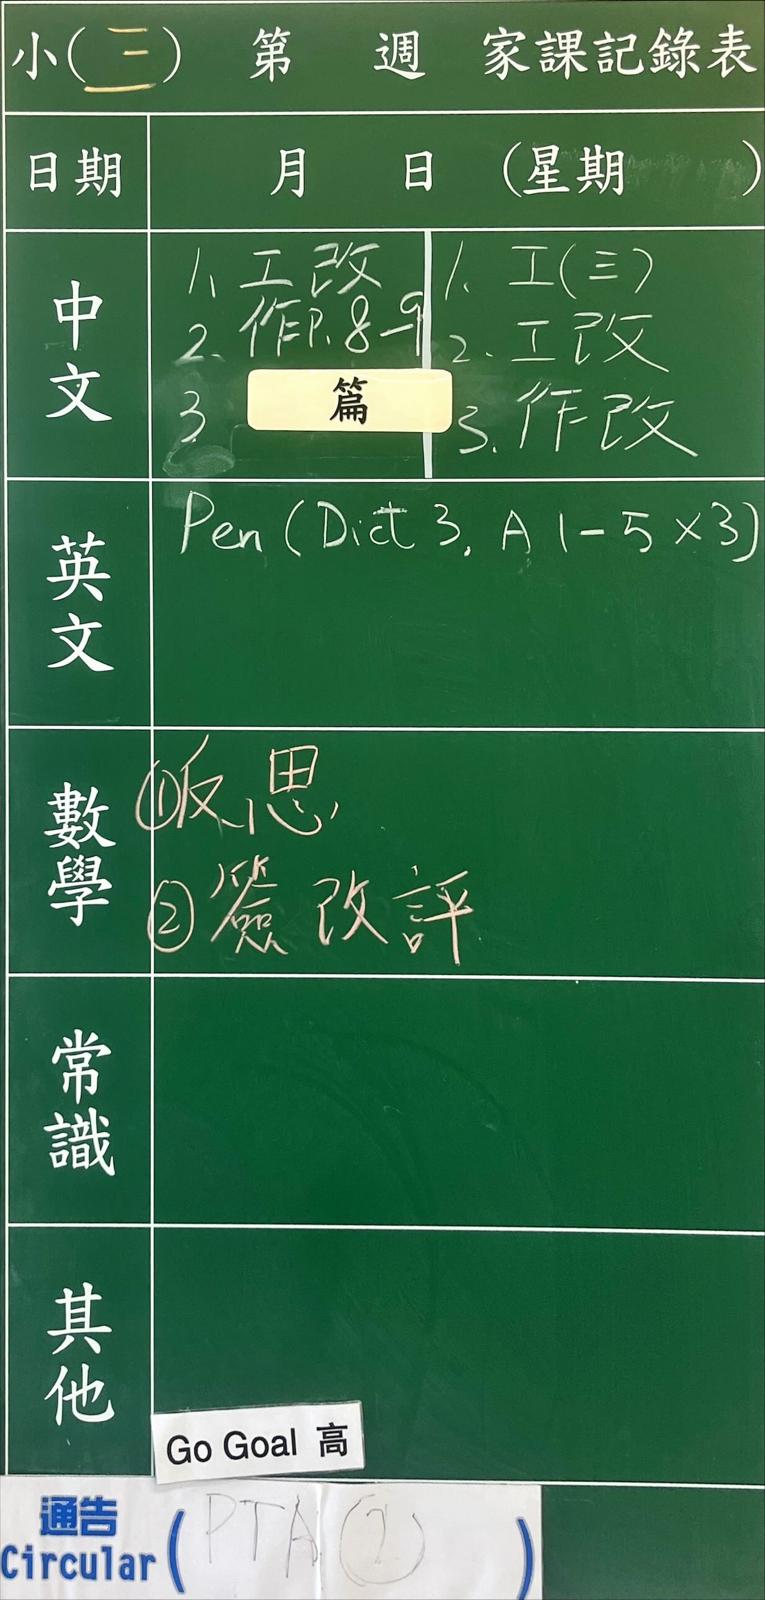 小(三) 第 週 家課記錄表
日期 月 日 (星期 )
中文
1. 工改
2. 作P. 8-9
3. 篇
1. 工(三)
2. 工改
3. 作改
英文
Pen (Dict 3, A 1-5 x3)
數學
①反思
②簽改評
常識
其他
Go Goal 高
通告
Circular ( PTA )